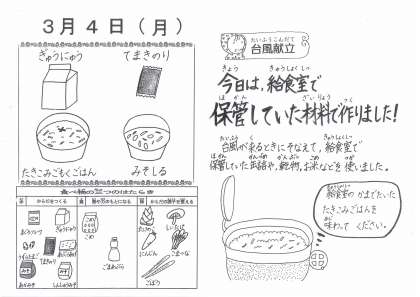 3月4日(月)
ぎゅうにゅう
てまきのり
たきこみごもくごはん
みそしる
食べ物の三つのはたらき
からだをつくる
熱や力のもとになる
からだの調子を整える
ぎゅうにゅう
てまきのり
こめ
ごまあぶら
たけのこ
しいたけ
にんじん
こまつな
ごぼう
たいふうこんだて
台風献立
きょう きゅうしょくしつ
今日は、給食室で
ほかん ざいりょう つく
保管していた材料で作りました!
たいふう く きゅうしょくしつ
台風が来るときにそなえて、給食室で
保管していた缶詰や、乾物、お米などを使いました。
給食室のかまでたいた
たきこみごはんを
味わってください。